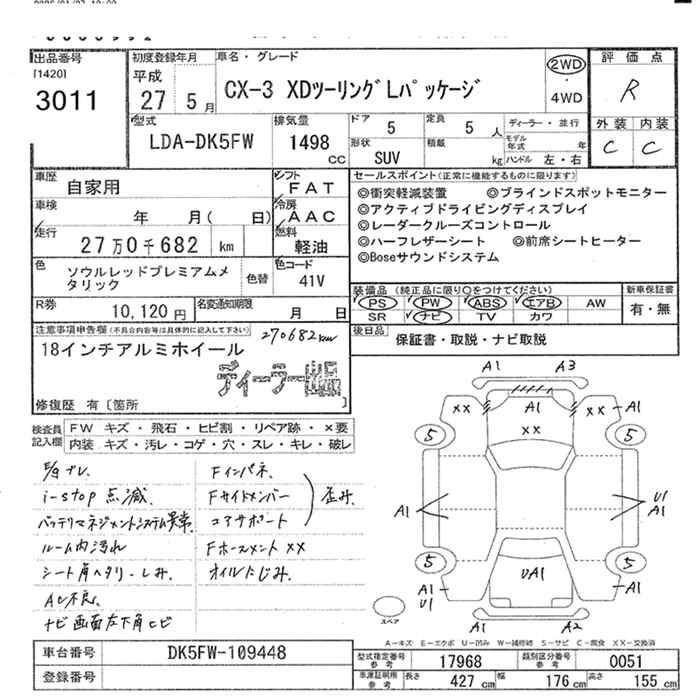 出品番号
[1420]
3011
初度登録年月
平成
27 5 月
車名・グレード
CX-3 XDツーリングLパッケージ
2WD
・
4WD
評価点
R
外装 内装
C C
型式
LDA-DK5FW
排気量
1498
CC
ドア 5
形状
SUV
定員 5 人
積載 kg
ディーラー・並行
モデル年式 年
ハンドル 左・右
車歴 自家用
車検 年 月( 日)
走行 27万0千682 km
シフト
FAT
冷房
AAC
燃料
軽油
色
ソウルレッドプレミアムメタリック
色替
色コード
41V
R券 10,120円
名変通知期限 月 日
セールスポイント(正常に機能するものに限ります)
◎衝突軽減装置 ◎ブラインドスポットモニター
◎アクティブドライビングディスプレイ
◎レーダークルーズコントロール
◎ハーフレザーシート ◎前席シートヒーター
◎Boseサウンドシステム
装備品(純正品に限り○をつけてください)
PS PW ABS エアB AW
SR ナビ TV カワ
新車保証書
有・無
後日品 保証書・取説・ナビ取説
注意事項申告欄(不具合内容等は具体的に記入して下さい)
270682km
18インチアルミホイール
ディーラー出品
修復歴 有[箇所 ]
検査員記入欄
FW キズ・飛石・ヒビ割・リペア跡・×要
内装 キズ・汚レ・コゲ・穴・スレ・キレ・破レ
i-stop 点滅.
バッテリマネジメントシステム異常.
ルーム内汚れ
シート角ヘタリ-しみ.
AC不良.
ナビ画面左下角ヒビ
Fインパネ.
Fサイドメンバー
コアサポート
歪み.
Fホースメント××
オイルにじみ.
A1 A3
×× A1 ×× A1
××
5 5
A1 U1
A1
5 5
UA1
A1
U1
A1
スペア
A1 A2
A-キズ E-エクボ U-凹み W-補修跡 S-サビ C-腐食 XX-交換済
車台番号 DK5FW-109448
登録番号
型式指定番号
参考
17968
類別区分番号
参考
0051
車庫証明用
参考
長さ 427 cm
幅 176 cm
高さ 155 cm